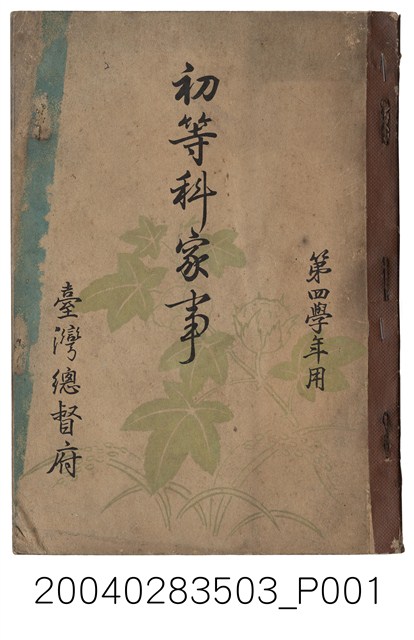 第四學年用
初等科家事
臺灣總督府
20040283503_P001